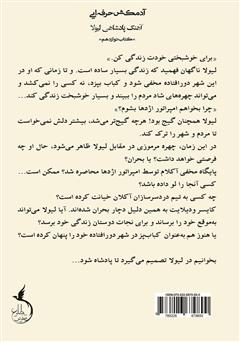 آدمکش حرفه‌ای
آهنگ پادشاهی لیولا
-کتاب دوازدهم-
«برای خوشبختی خودت زندگی کن.»
لیولا ناگهان فهمید که زندگی بسیار ساده است. و تا زمانی که او در
این شهر دورافتاده مخفی شود و کباب بپزد، نه کسی را نمی‌کشد و
می‌تواند چهره‌های شاد مردم را ببیند و بسیار خوشبخت زندگی کند...
«چرا بخواهم امپراتور اژدها بشوم؟»
لیولا همچنان گیج بود! هرچه گیج‌تر می‌شد، بیشتر دلش نمی‌خواست
تا مردم و شهر را ترک کند.
در این زمان، چهره مرموزی در مقابل لیولا ظاهر می‌شود، حال او چه
فرصتی خواهد داشت؟ یا بحران؟
پایگاه مخفی آکلام توسط امپراتور اژدها محاصره شد؟ ممکن است...
کسی آنجا را لو داده باشد؟
چه کسی به تیم دردسرسازان آکلان خیانت کرده است؟
کایسر ودیلایت به همین دلیل دچار بحران شده‌اند. آیا لیولا می‌تواند
به‌موقع خود را برساند و برای نجات دوستان زندگی خود برسد؟
یا هنوز هم به‌عنوان کباب‌پز در شهر دورافتاده خود را پنهان کرده است؟
بخوانیم در لیولا تصمیم می‌گیرد تا پادشاه شود...